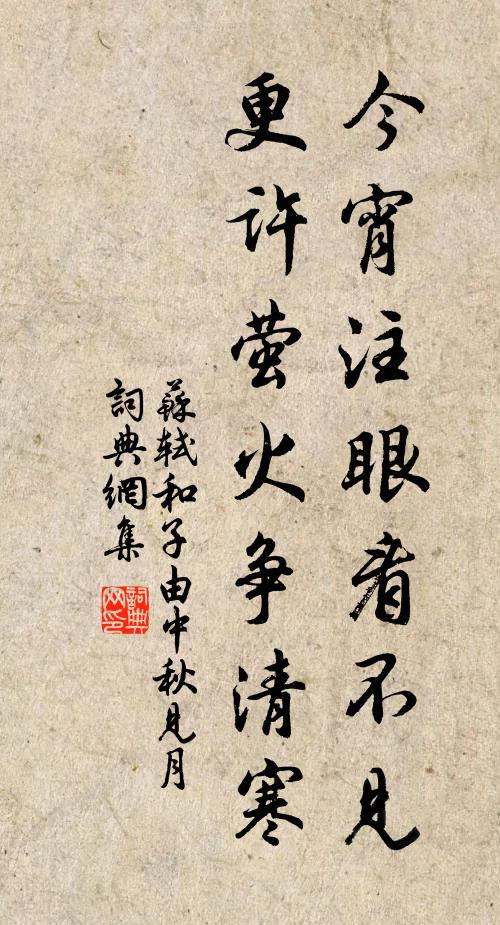 今宵注眼看不見
更許萤火争清寒
蘇軾和子由中秋見月
詞典網集
詞典网印